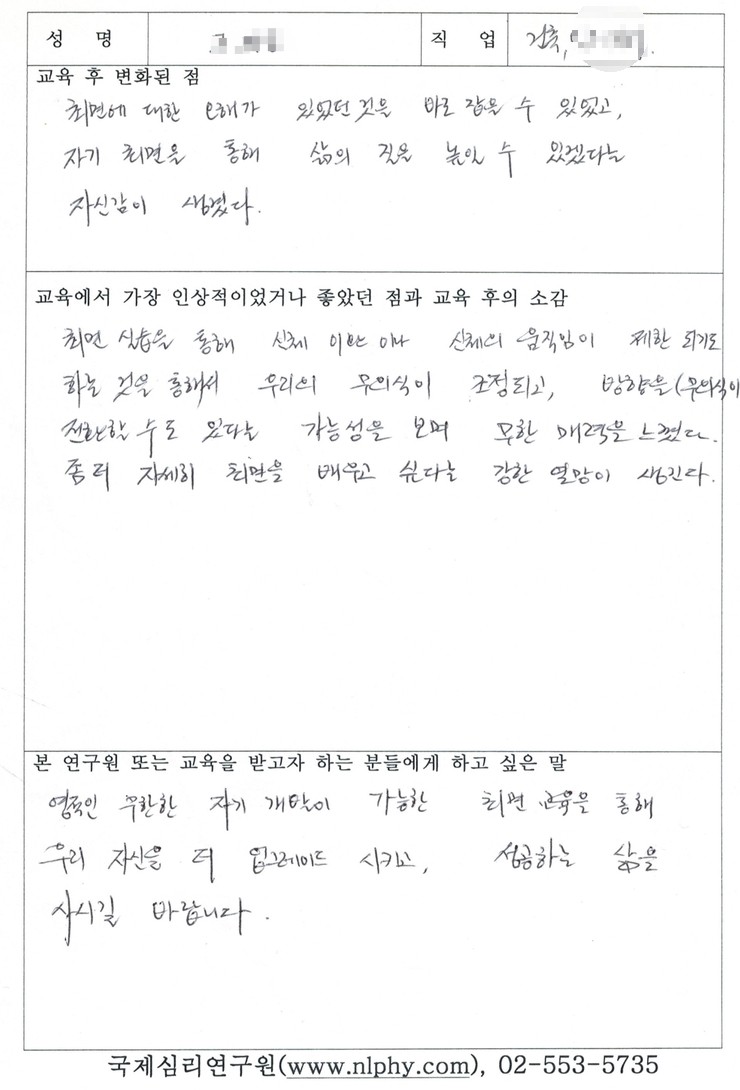 성 명 고 직 업 건축,
교육 후 변화된 점
최면에 대한 오해가 있었던 것을 바로 잡을 수 있었고,
자기 최면을 통해 삶의 질을 높일 수 있겠다는
자신감이 생겼다.
교육에서 가장 인상적이었거나 좋았던 점과 교육 후의 소감
최면 실습을 통해 신체 이완 이나 신체의 움직임이 제한 되기도
하는 것을 통해서 우리의 무의식이 조정되고, 방향을(무의식이
전환할 수도 있다는 가능성을 보며 무한 매력을 느꼈다.
좀 더 자세히 최면을 배우고 싶다는 강한 열망이 생긴다.
본 연구원 또는 교육을 받고자 하는 분들에게 하고 싶은 말
영적인 무한한 자기 개발이 가능한 최면 교육을 통해
우리 자신을 더 업그레이드 시키고, 성공하는 삶을
사시길 바랍니다.
국제심리연구원(www.nlphy.com), 02-553-5735